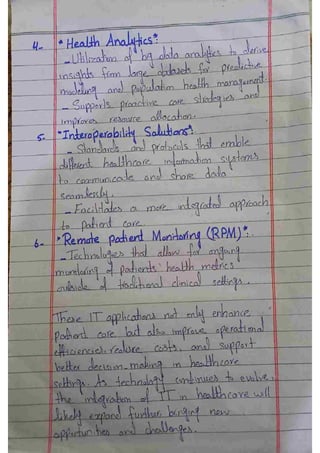 4- *Health Analytics*:
- Utilization of big data analytics to derive
insights from large datasets for predictive
modeling and population health management.
- Supports proactive care strategies and
improves resource allocation.
5- *Interoperability Solutions*:
- Standards and protocols that enable
different healthcare information systems
to communicate and share data
seamlessly.
- Facilitates a more integrated approach
to patient care.
6- *Remote Patient Monitoring (RPM)*:
- Technologies that allow for ongoing
monitoring of patients' health metrics
outside of traditional clinical settings.
These IT applications not only enhance
patient care but also improve operational
efficiencies, reduce costs, and support
better decision-making in healthcare
settings. As technology continues to evolve,
the integration of IT in healthcare will
likely expand further, bringing new
opportunities and challenges.